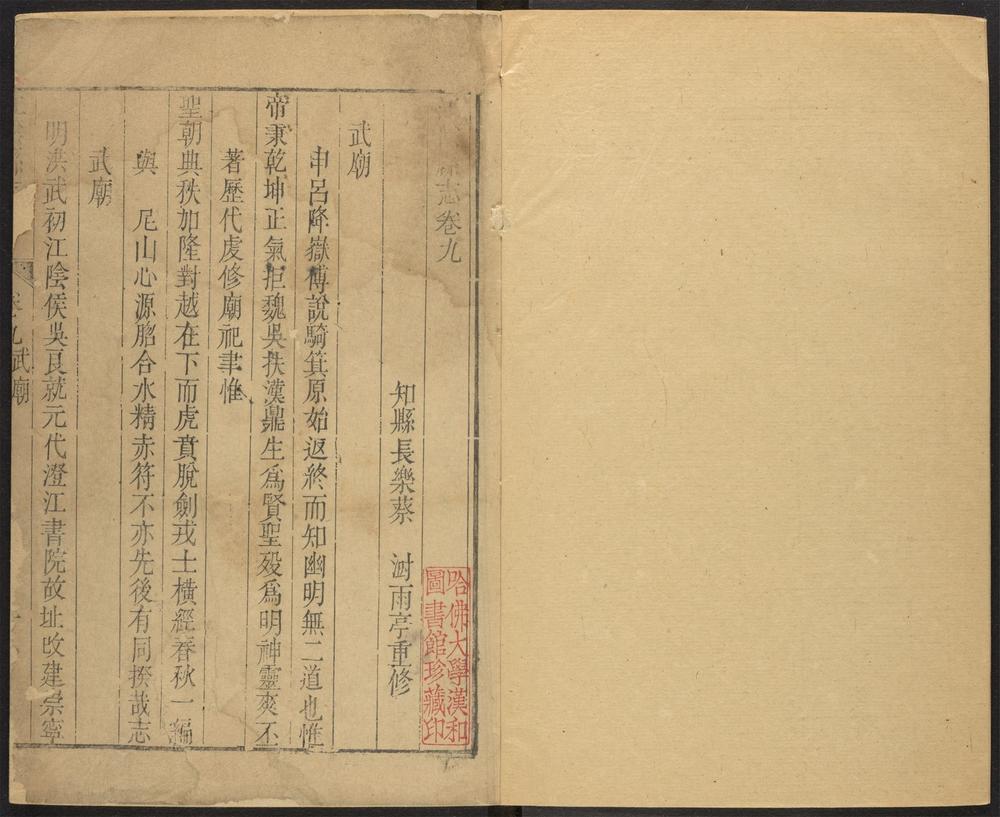 志卷九
知縣長樂蔡　澍雨亭重修
武廟
申呂降嶽傅說騎箕原始返終而知幽明無二道也惟
帝秉乾坤正氣拒魏吳扶漢鼎生為賢聖殁為明神靈爽不
著歷代虔修廟祀聿惟
聖朝典秩加隆對越在下而虎賁脫劍戎士橫經春秋一編
與　尼山心源脗合水精赤符不亦先後有同揆哉志
武廟
明洪武初江陰侯吳良就元代澄江書院故址改建崇寧
卷九武廟
哈佛大學漢和
圖書館珍藏印